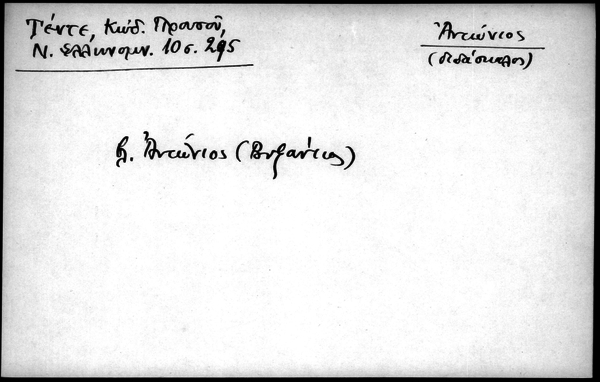 Τέντε, Κώδ. Πρατοῦ,
Ν. Ἑλληνομν. 10 σ. 295
Ἀντώνιος
(διδάσκαλος)
βλ. Ἀντώνιος (Βυζάντιος)